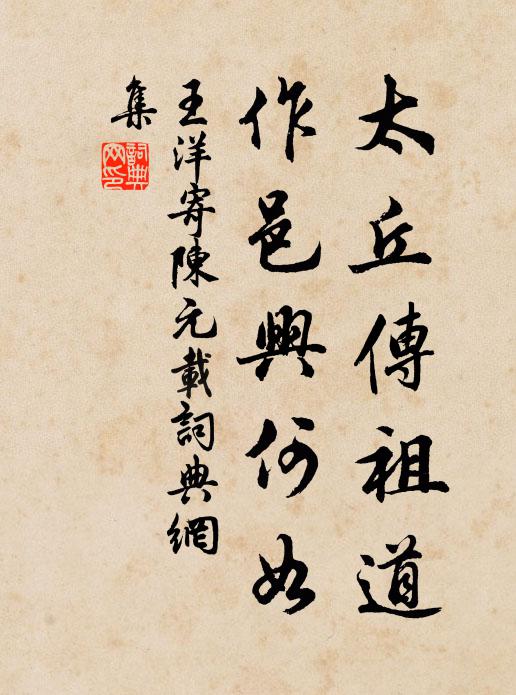 太丘傳祖道
作邑興何如
王洋寄陳元載詞典網
集
詞典網印